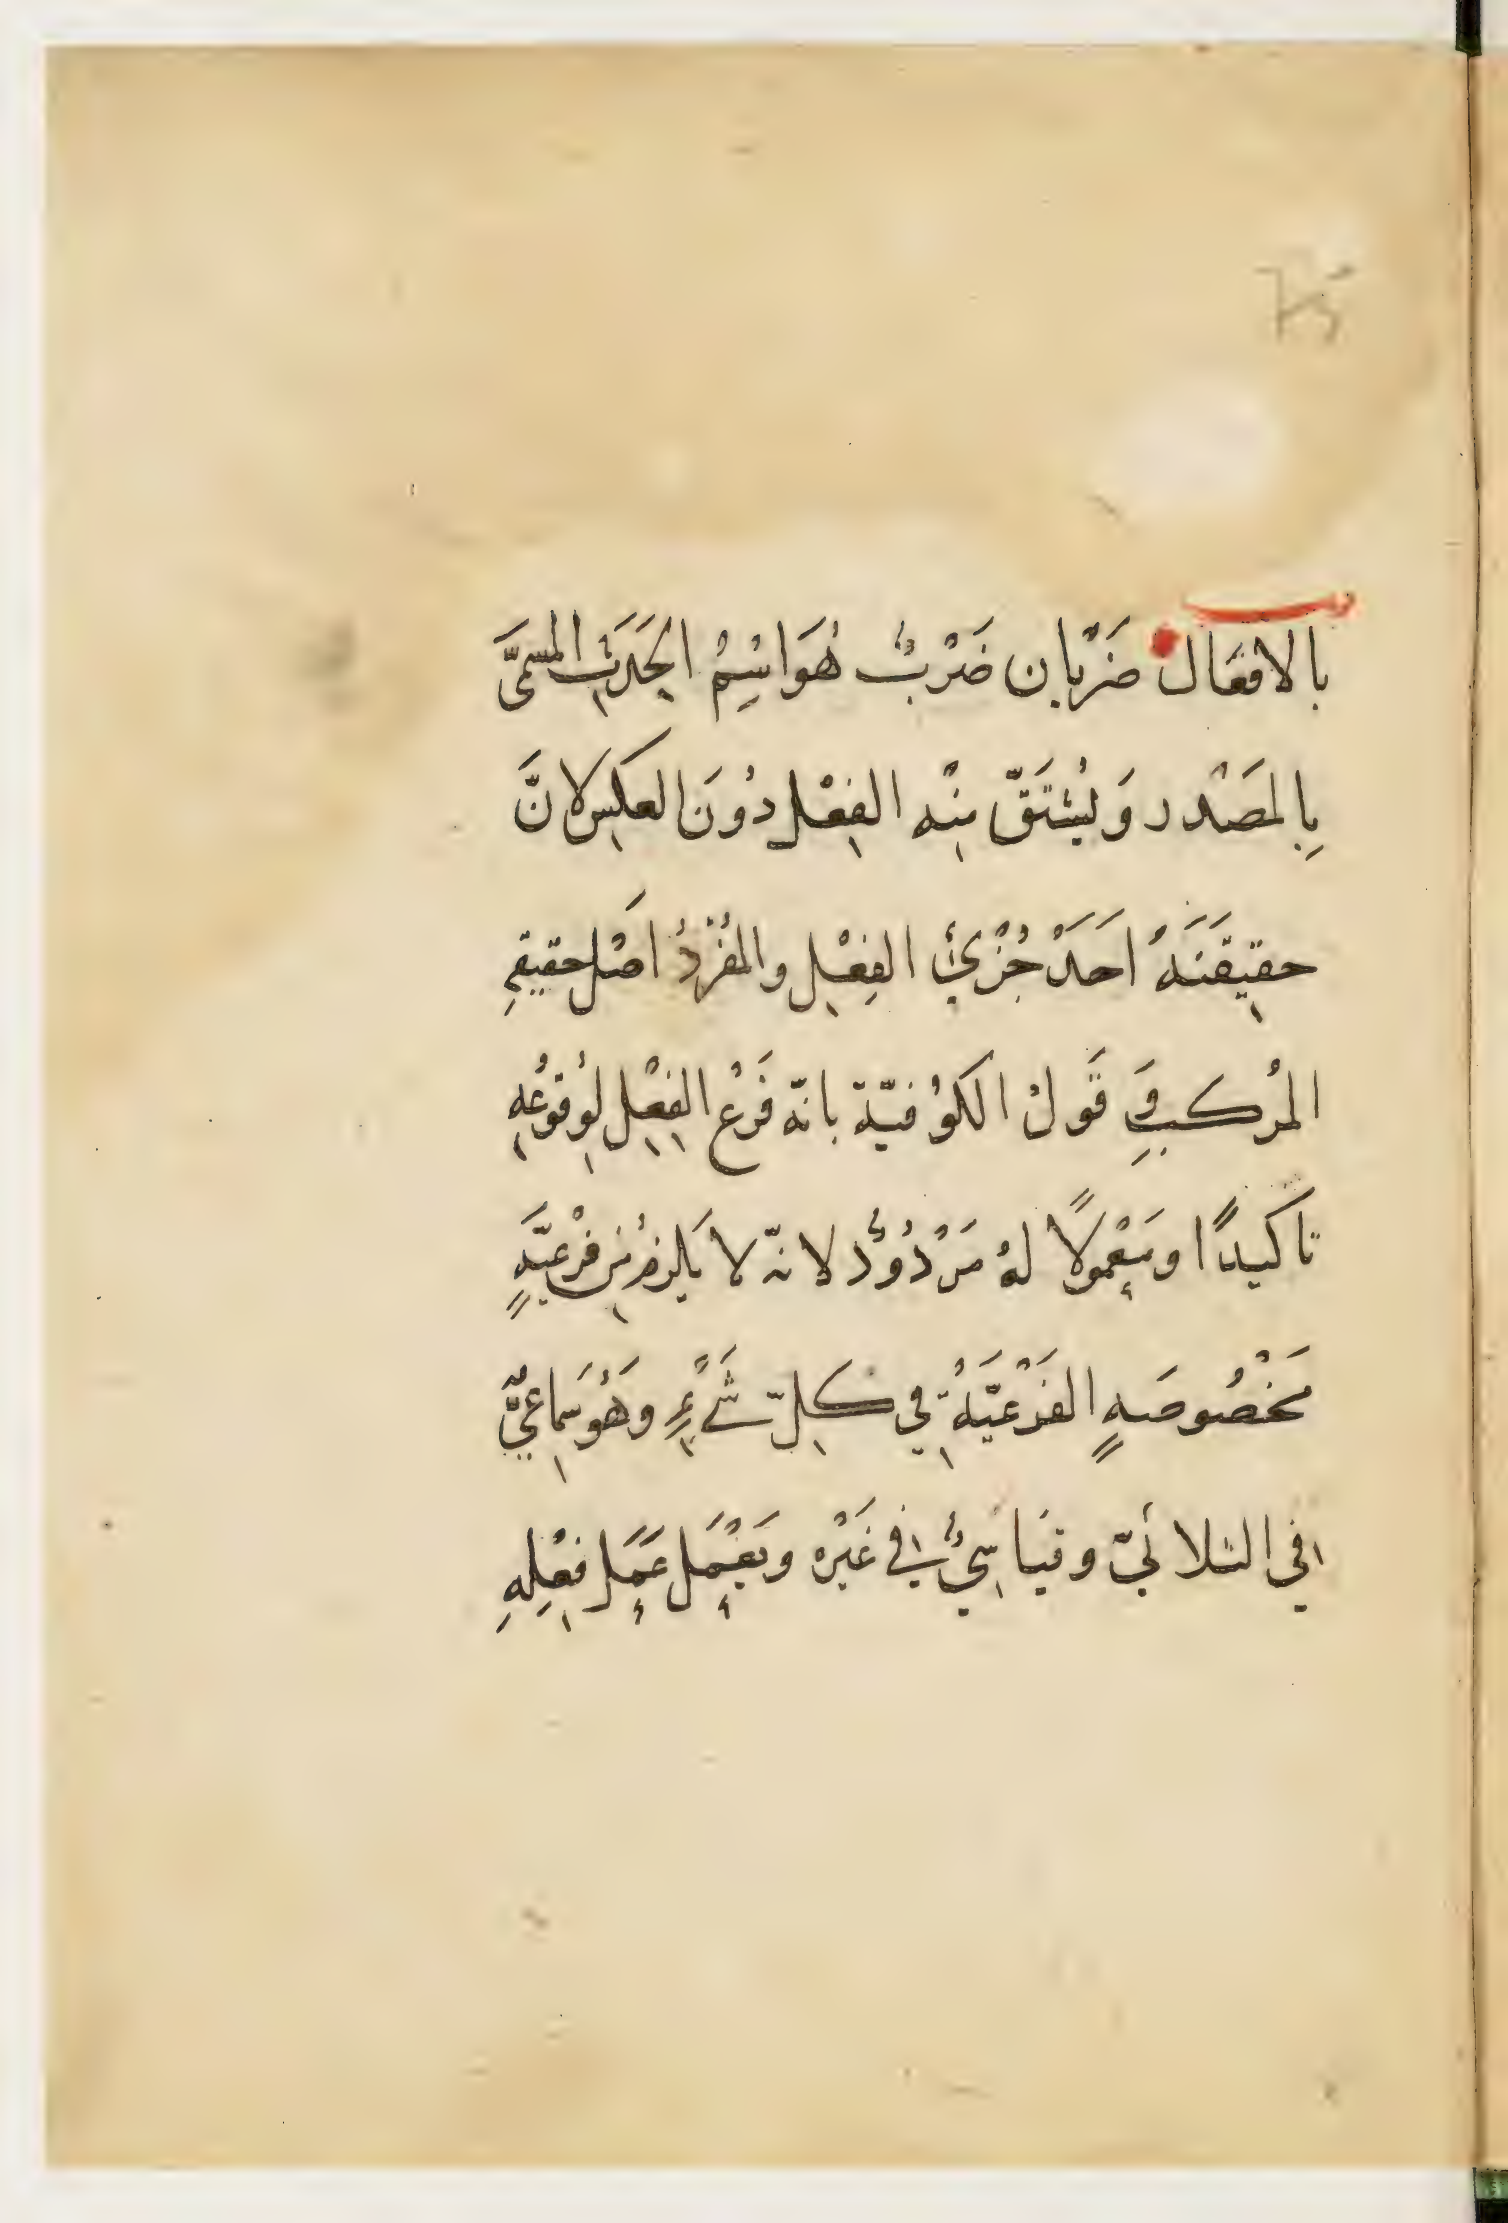 بالافعَال ضَرْبان ضَرْبٌ هُوَ اسْمُ الحَدَثِ المسمَّى
بِالمَصْدر وَيُشْتَقّ مِنْه الفِعْل دُونَ العكسِ لانَّ
حقيقَتَهُ اَحَدْ جُزْئَيْ الفِعْلِ والمُفْرَدُ اَصْل حقيقةِ
المُركبِ وَقَولُ الكوُفيّة بانّه فَرْعُ الفِعْلِ لِوُقوُعِهِ
تاكيدًا ومَعْمولًا لهُ مَرْدُوْدٌ لانّه لا يَلزمُ مِن فرْعيَّةٍ
مَخْصُوصَهٍ الفَرْعيَّةُ في كلِّ شَيْءٍ وَهُوَ سَمَاعِيٌّ
في الثلاثيّ وقيَاسِيٌّ في غَيْرِه ويَعْمَل عَمَل فِعْلِهِ